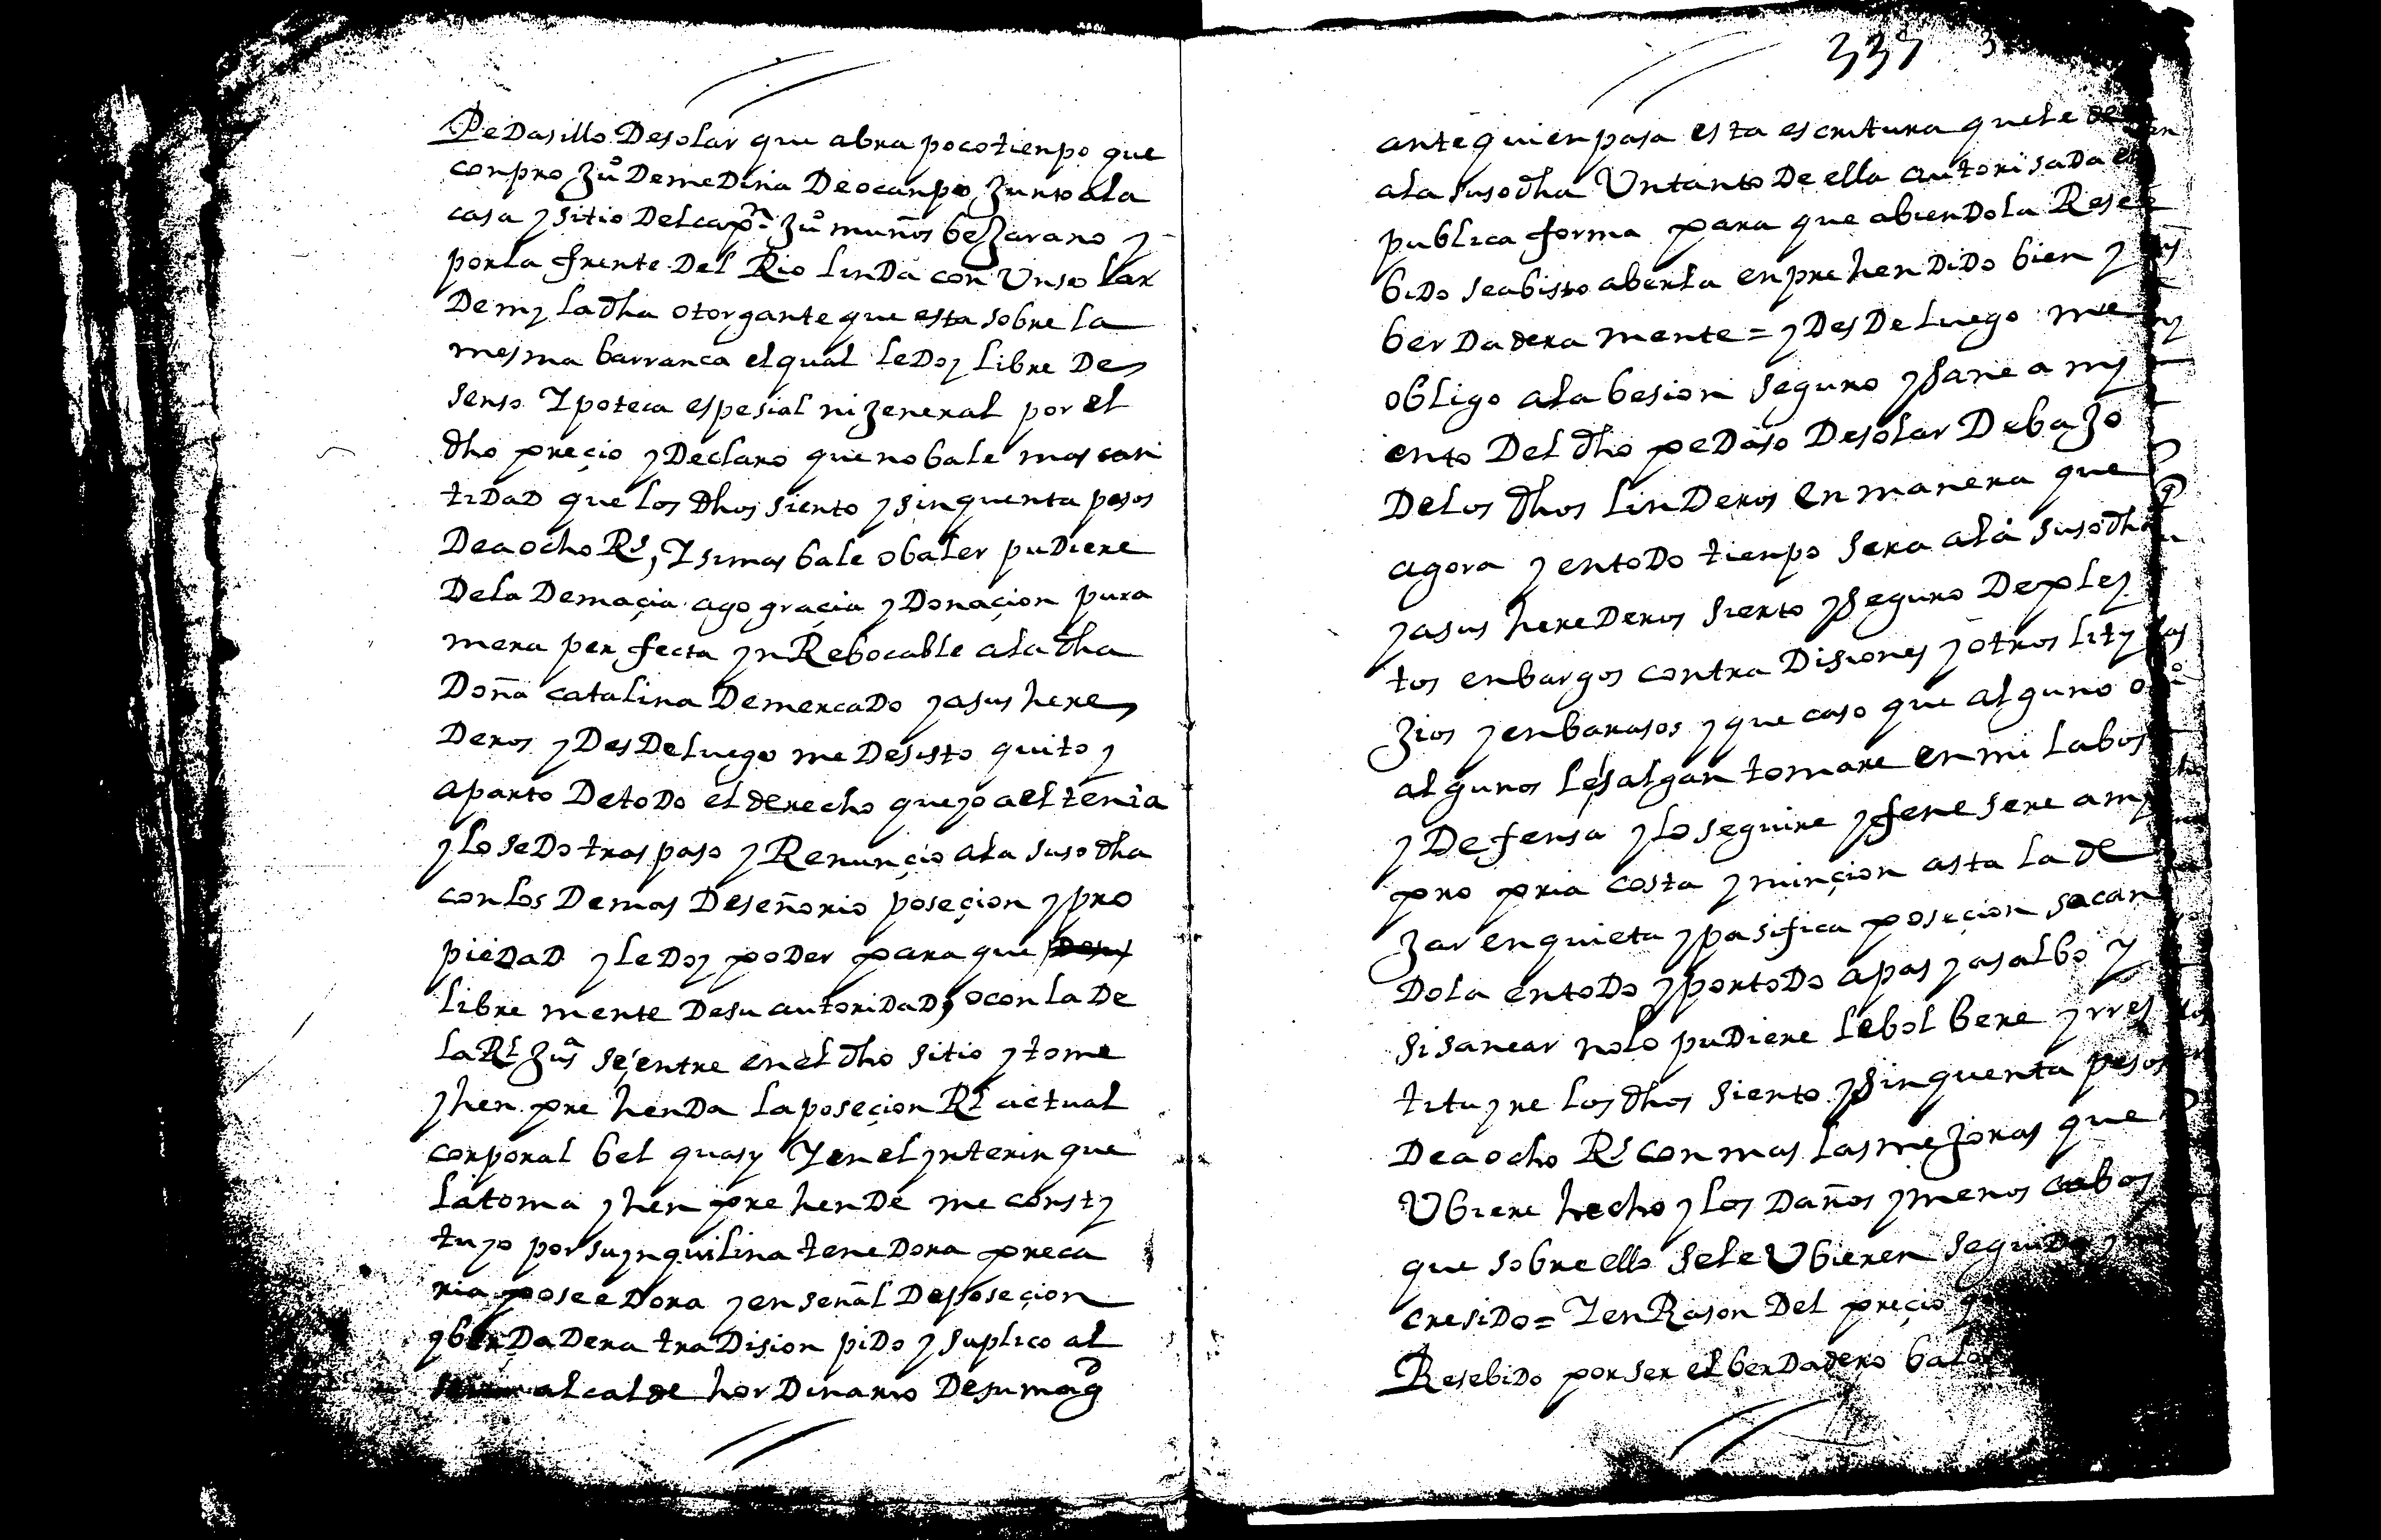 PeDasillo Desolar que abra poco tienpo que
conpro Juº DemeDina Deocanpo Junto ala
casa y sitio Del capⁿ Juº muños beJarano y
por la frente Del Rio linDa con Un solar
De my la dha otorgante que esta sobre la
mesma barranca el qual le Doy libre De
senso Ypoteca espesial ni Jeneral por el
dho preçio y Declaro que no bale mas can
tiDaD que los dhos siento y sinquenta pesos
De a ocho Rs, Y si mas bale o baler puDiere
De la Demaçia ago graçia y Donaçion pura
mera perfecta ynRebocable a la dha
Doña catalina De mercaDo y a sus here
Deros y DesDe luego me Desisto quito y
aparto De toDo el derecho que yo a el tenia
y lo seDo traspaso y Renunçio a la suso dha
con los Demas De señorio poseçion y pro
pieDaD y le Doy poDer para que
libre mente De su autoriDaD, o con la De
la Rl Jusª se entre en el dho sitio y tome
y henprehenDa la poseçion Rl actual
corporal bel quasy Y en el ynterin que
la toma y henprehenDe me consty
tuyo por su ynquilina teneDora preca
ria poseeDora y en señal De poseçion
y berDaDera traDision piDo y suplico al
alcalde horDinario De su magd
337
ante quien pasa esta escritura que le de
a la suso dha Un tanto De ella autorisaDa en
publica forma para que abienDola Rese
biDo sea bisto aberla enprehenDiDo bien y
berDadera mente = y DesDe luego me
obligo a la besion seguro y sane a my
ento Del dho peDaso De solar DebaJo
De los dhos linDeros en manera que
agora y en toDo tienpo sera a la suso dha
y a sus hereDeros sierto y seguro De pley
tos enbargos contraDisiones y otros lity
Jios y enbarasos y que caso que alguno o
algunos le salgan tomare en mi la bos
y Defensa y lo seguire y fenesere a my
pro pria costa y minçion asta la de
Jar en quieta y pasifica poseçion sacan
Dola en toDo y por toDo a pas y a salbo y
si sanear no lo puDiere le bolbere y rres
tituyre los dhos siento y sinquenta pesos
De a ocho Rs con mas las meJoras que
Ubiere hecho y los Daños y menos cabos
que sobre ello se le Ubieren seguiDo y
cresiDo = Y en Rason Del preçio
ResebiDo por ser el berDadero balor